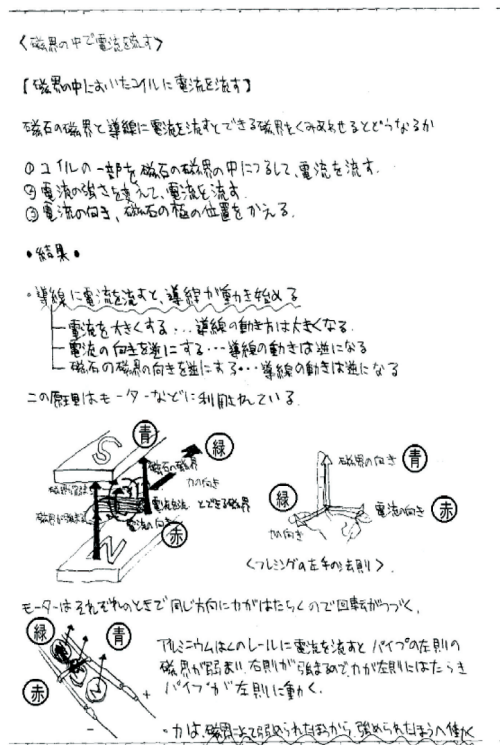 〈磁界の中で電流を流す〉
【磁界の中においたコイルに電流を流す】
磁石の磁界と導線に電流を流すとできる磁界をくみあわせるとどうなるか
①コイルの一部を磁石の磁界の中につるして、電流を流す.
②電流の強さを変えて、電流を流す.
③電流の向き、磁石の極の位置をかえる.
•結果•
・導線に電流を流すと、導線が動き始める
電流を大きくする・・・導線の動き方は大きくなる.
電流の向きを逆にする・・・導線の動きは逆になる
磁石の磁界の向きを逆にする・・・導線の動きは逆になる
この原理はモーターなどに利用されている.
S
青
緑
磁石の磁界
力の向き
電流を流すとできる磁界
電流の向き
赤
N
磁界の向き
青
緑
電流の向き
赤
力の向き
〈フレミングの左手の法則〉
モーターはそれぞれのときで同じ方向に力がはたらくので回転がつづく.
緑
青
赤
+
−
アルミニウムはくのレールに電流を流すとパイプの左側の
磁界が弱まり、右側が強まるので、力が左側にはたらき
パイプが左側に動く.
・力は、磁界
弱められたほう
強められたほう